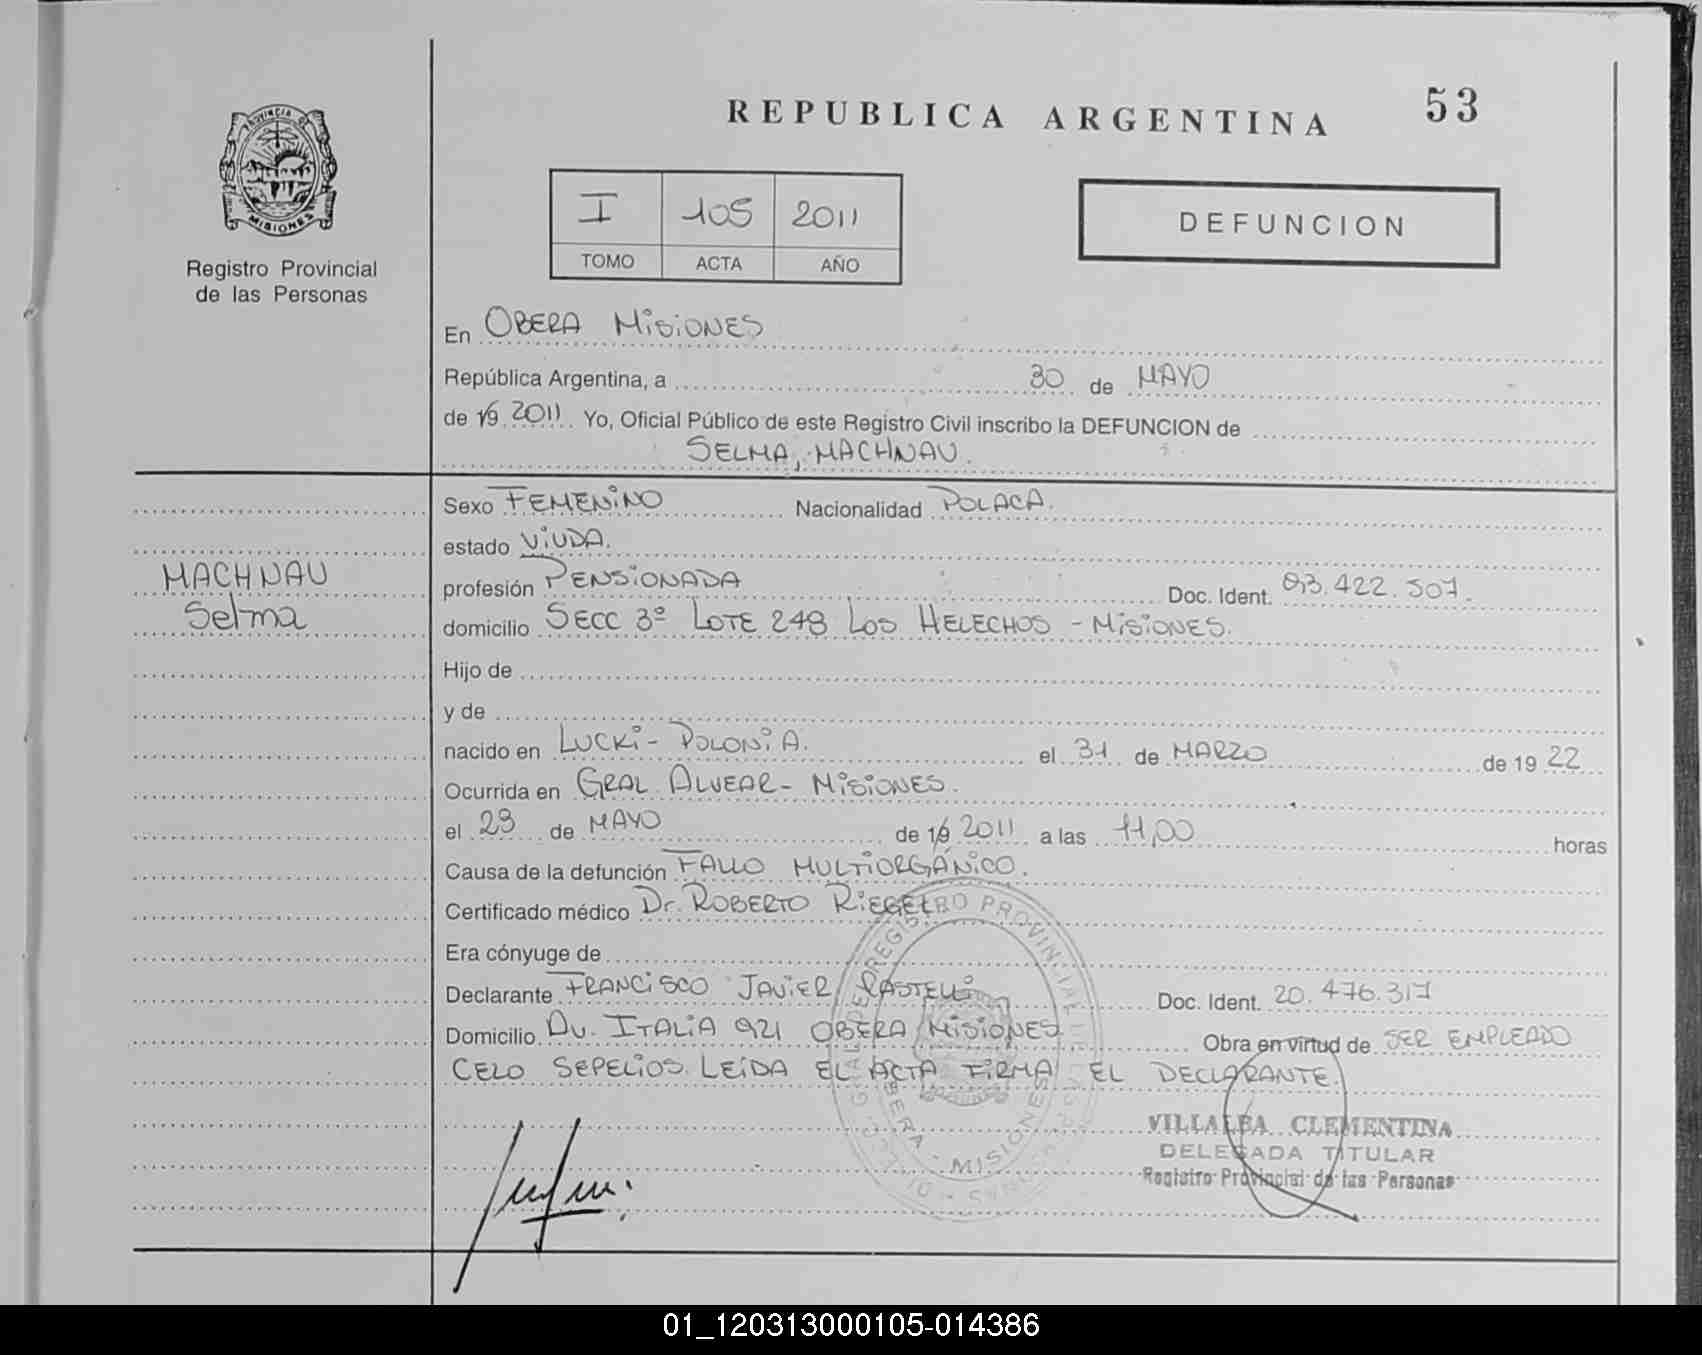 PROVINCIA DE
MISIONES
Registro Provincial
de las Personas
REPUBLICA ARGENTINA 53
I 105 2011
TOMO ACTA AÑO
DEFUNCION
En OBERA MISIONES
República Argentina, a 30 de MAYO
de 19 2011 Yo, Oficial Público de este Registro Civil inscribo la DEFUNCION de
SELMA, MACHNAU.
Sexo FEMENINO Nacionalidad POLACA.
estado VIUDA.
MACHNAU
Selma
profesión PENSIONADA Doc. Ident. 93.422.507.
domicilio SECC 3º LOTE 248 LOS HELECHOS - MISIONES.
Hijo de
y de
nacido en LUCKI - POLONIA. el 31 de MARZO de 19 22
Ocurrida en GRAL ALVEAR - MISIONES.
el 29 de MAYO de 19 2011 a las 11,00 horas
Causa de la defunción FALLO MULTIORGÁNICO.
Certificado médico Dr. ROBERTO RIEGEL
Era cónyuge de
Declarante FRANCISCO JAVIER RASTELLI Doc. Ident. 20.476.317
Domicilio AV. ITALIA 921 OBERA MISIONES Obra en virtud de SER EMPLEADO
CELO SEPELIOS. LEIDA EL ACTA FIRMA EL DECLARANTE.
OBERA - MISIONES
VILLALBA CLEMENTINA
DELEGADA TITULAR
Registro Provincial de las Personas
01_120313000105-014386